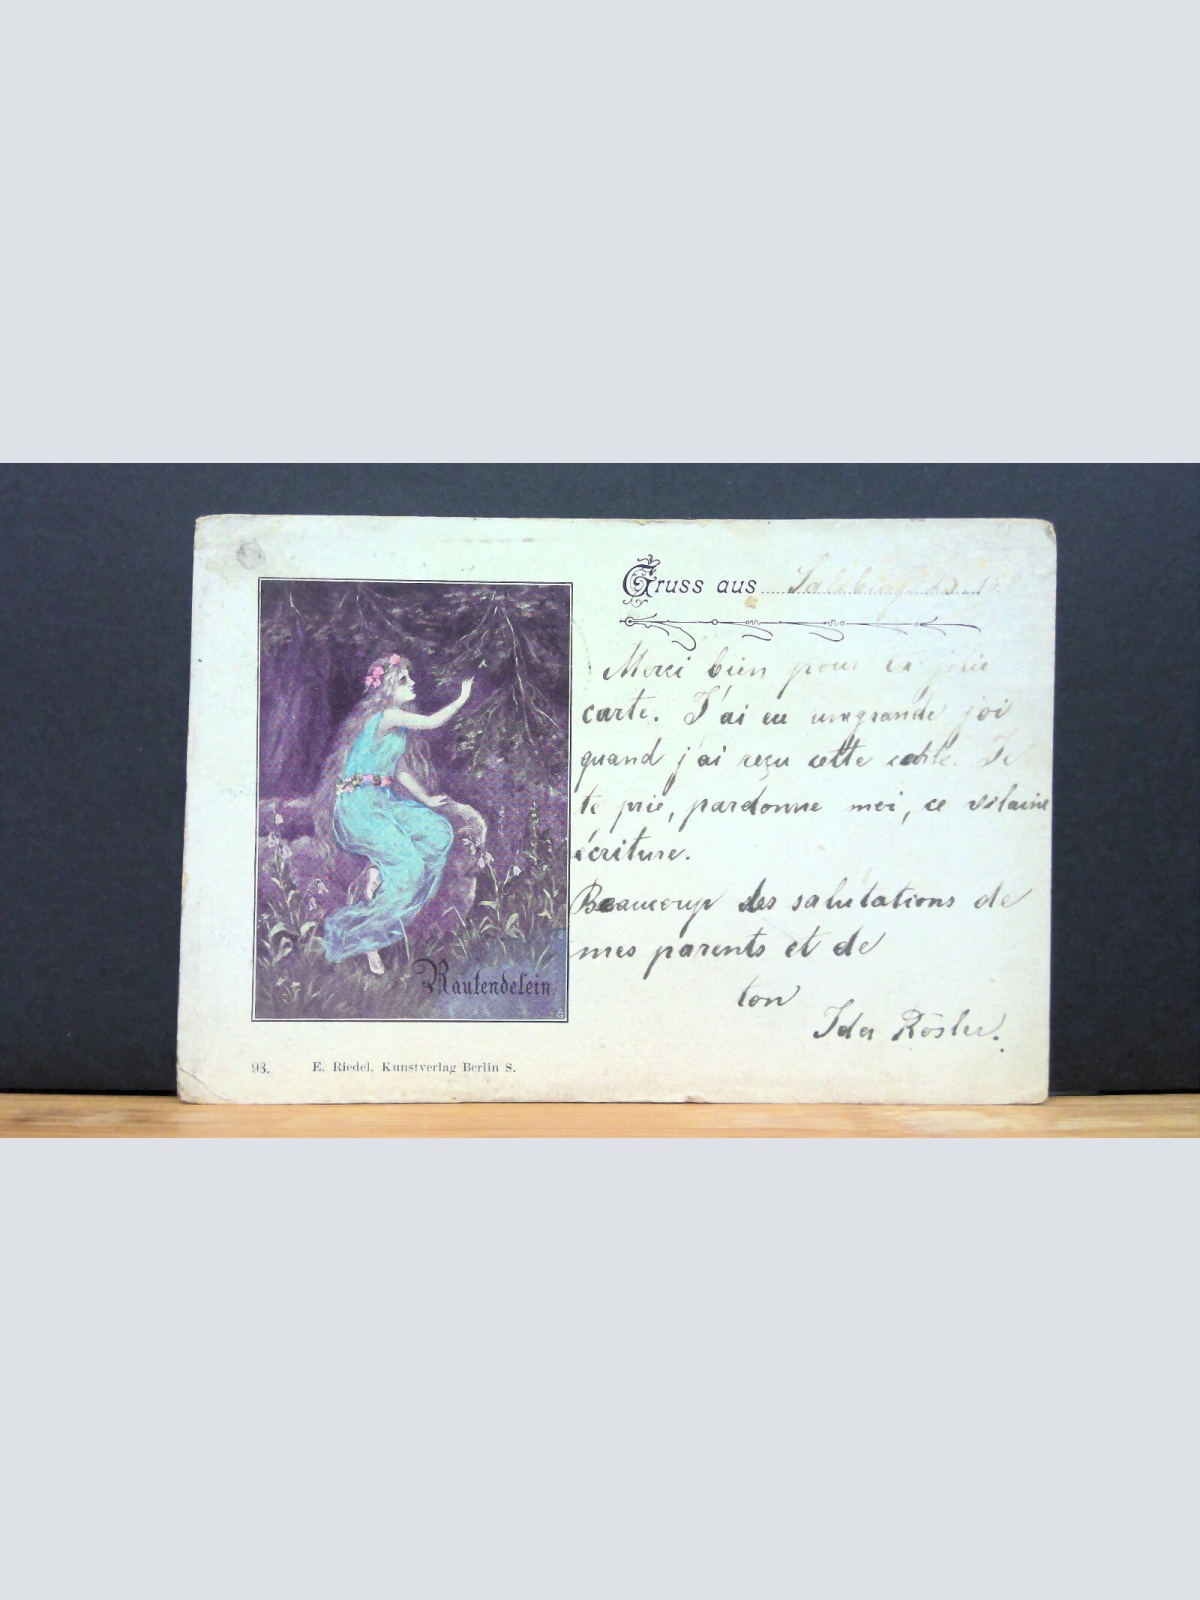 Gruss aus Salzburg 23. 10
Merci bien pour ta jolie
carte. J'ai eu une grande joi
quand j'ai reçu cette carte. Je
te prie, pardonne moi, ce vilaine
écriture.
Beaucoup des salutations de
mes parents et de
ton
Ida Rösler.
Rautendelein
93. E. Riedel, Kunstverlag Berlin S.